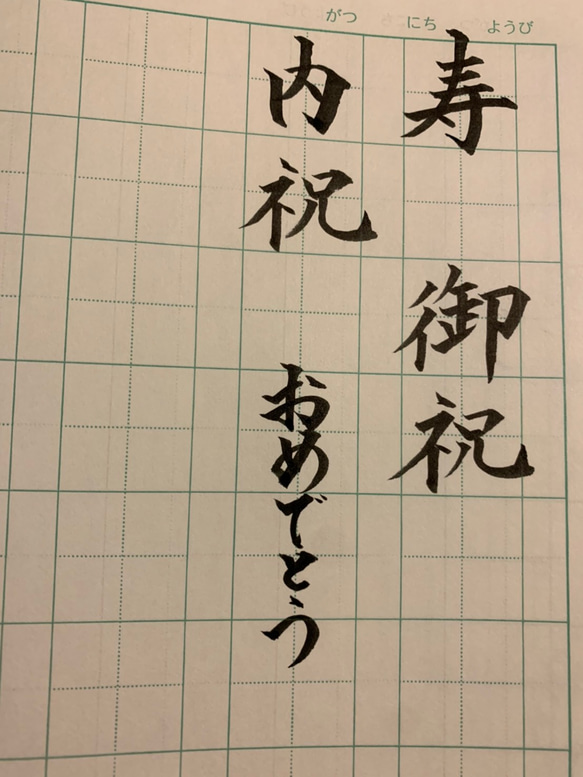 がつ にち ようび
寿 御祝
内祝 おめでとう